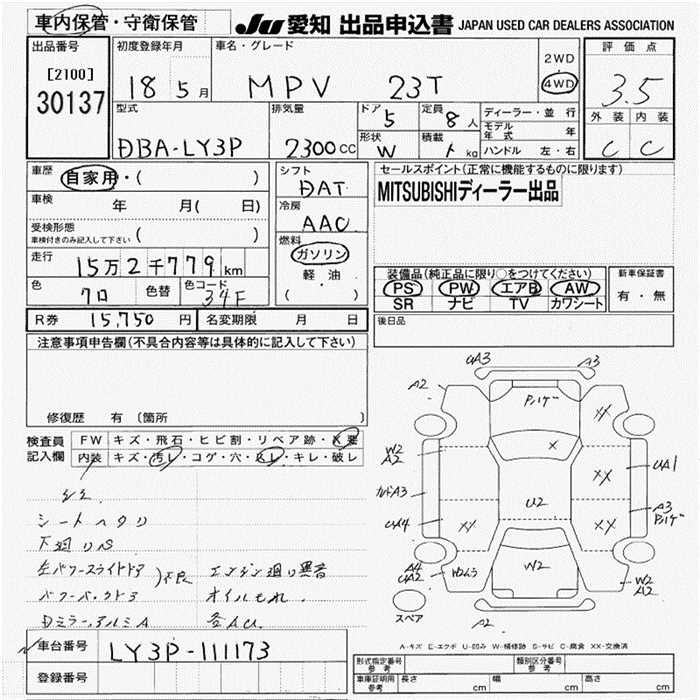 車内保管・守衛保管
JU 愛知 出品申込書 JAPAN USED CAR DEALERS ASSOCIATION
出品番号
[2100]
30137
初度登録年月
18年5月
車名・グレード
MPV 23T
2WD
4WD
評価点
3.5
外装 内装
C C
型式
DBA-LY3P
排気量
2300cc
ドア
5
定員
8人
形状
W
積載
kg
ディーラー・並行
モデル年式 年
ハンドル 左・右
車歴
自家用・( )
車検 年 月( 日)
受検形態
車検付きのみ記入して下さい ( )
走行
15万2千779km
色
クロ
色替
色コード
34F
シフト
DAT
冷房
AAC
燃料
ガソリン
軽・油
( )
セールスポイント(正常に機能するものに限ります)
MITSUBISHIディーラー出品
装備品(純正品に限り○をつけてください)
PS PW エアB AW
SR ナビ TV カワシート
新車保証書
有・無
R券 15,750円 名変期限 月 日
後日品
注意事項申告欄(不具合内容等は具体的に記入して下さい)
修復歴 有 〔箇所 〕
検査員記入欄
FW キズ・飛石・ヒビ割・リペア跡・X要
内装 キズ・汚レ・コゲ・穴・スレ・キレ・破レ
シートヘタリ
下廻りS
左パワースライドドア
パワーバックドア
)不良
DミラーアルミA
エンジン廻り異音
オイルもれ
各AU
車台番号 LY3P-111173
登録番号
UA3
A3
A2
Pハゲ
XX
W2
A2
X
XX
UA1
カドA3
U2
A3
Pハゲ
UA4
XX
XX
A4
UA2
W2
W2
A2
A2
スペア
A-キズ E-エクボ U-凹み W-補修跡 S-サビ C-腐食 XX-交換済
形式指定番号
参考
類別区分番号
参考
車庫証明用
参考
長さ cm
幅 cm
高さ cm